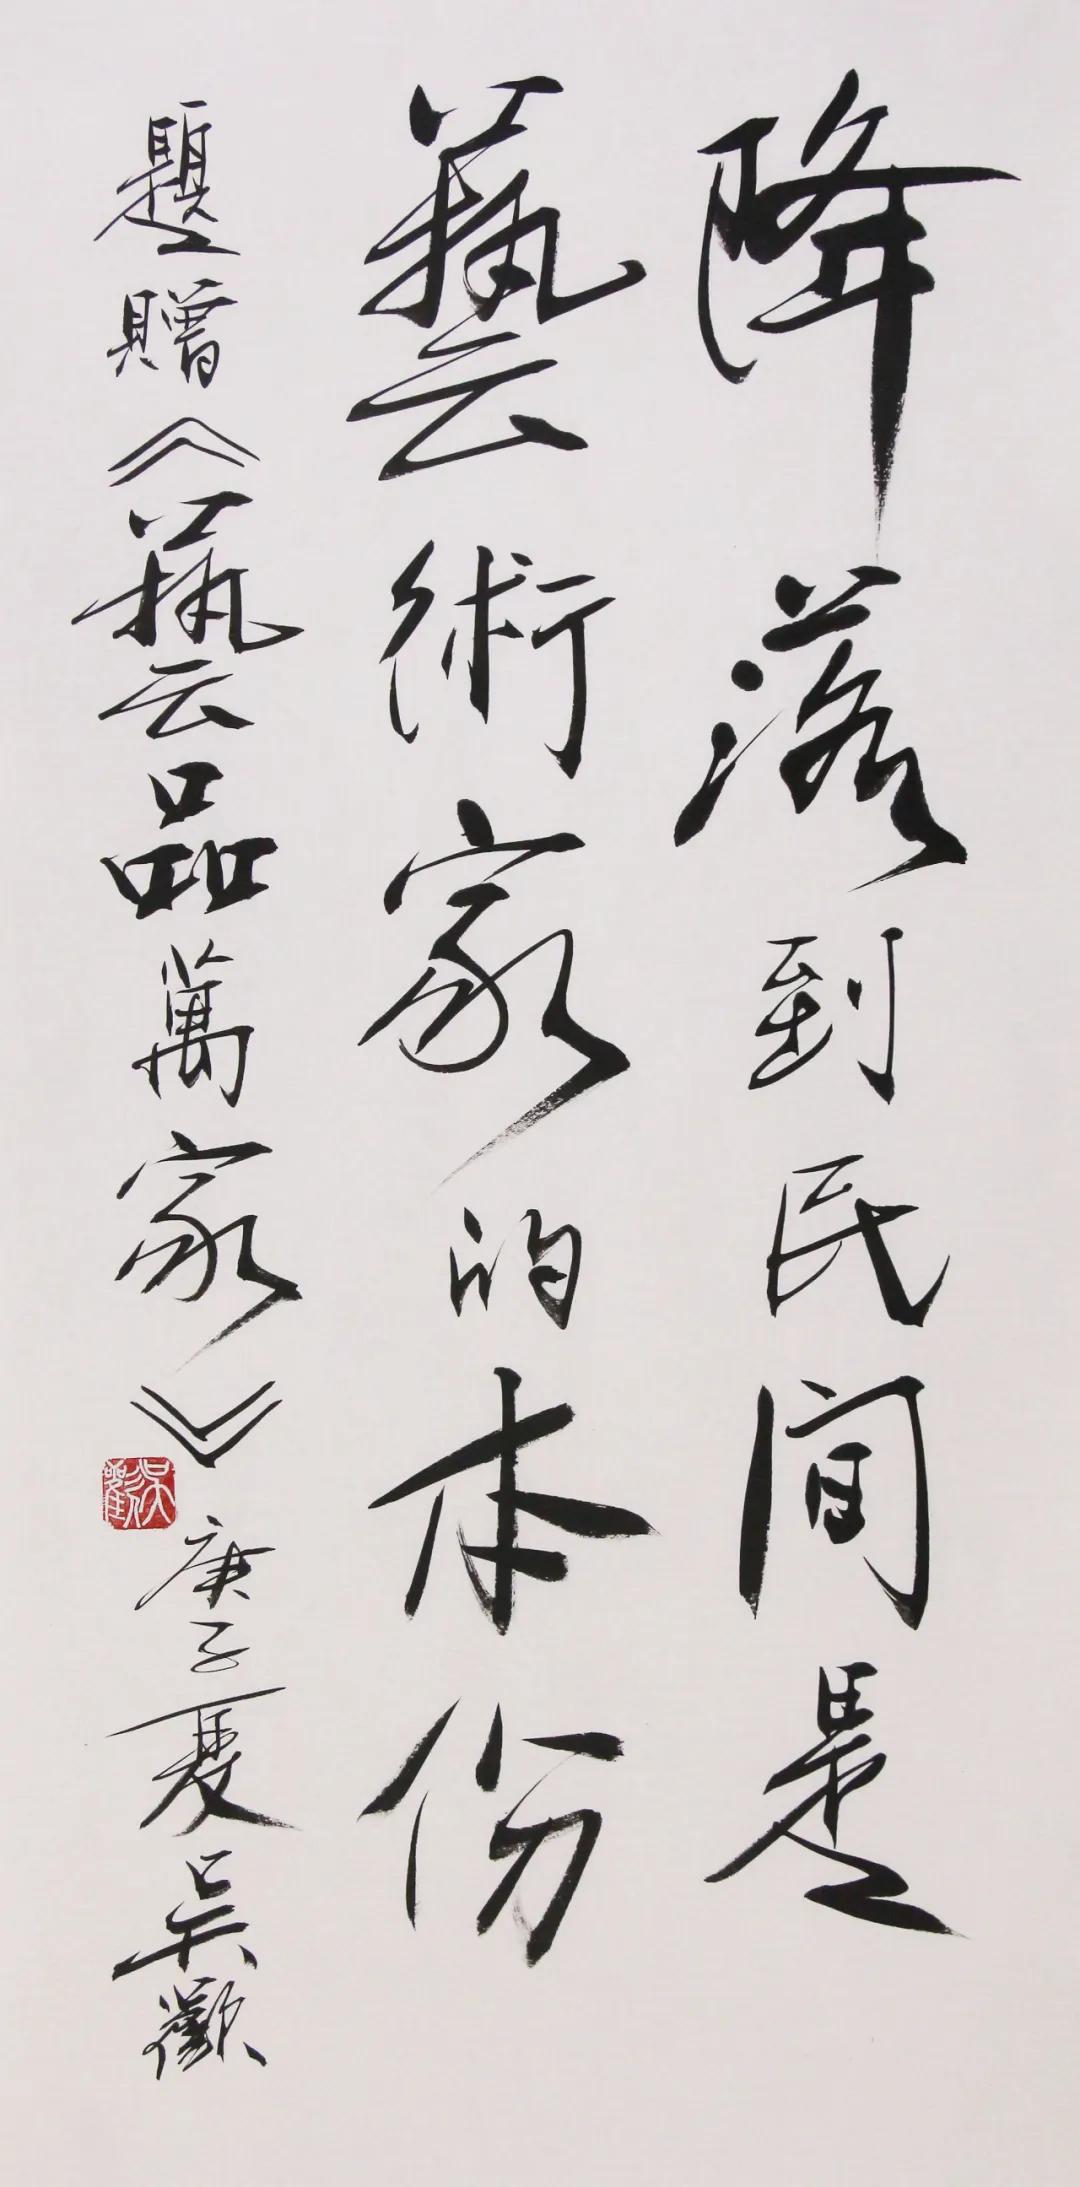 降落到民间是
藝術家的本份
題贈《藝品萬家》庚子夏吴歡
吴歡